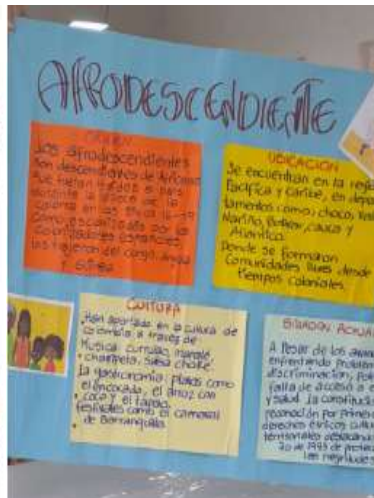 AFRODESCENDIENTE
ORIGEN
Los afrodescendientes
son descendientes de africanos
que fueron traídos a país
durante la época de la
colonia en los siglos 16-19
como esclavizados por los
colonizadores españoles,
los trajeron del congo, Angola
y Guinea.
UBICACION
Se encuentran en la regi
Pacífica y caribe, en depa
tamentos como: choco, Vall
Nariño, Bolívar, cauca y
Atlantico.
Donde se formaron
Comunidades libres desde
tiempos coloniales.
CULTURA
Han aportado en la cultura de
colombia a traves de:
Musica: currulao, mapalé,
champeta, salsa choke.
La gastronomia: platos como
el encocado, el arroz con
coco y el tapao.
festivales como el carnaval
de Barranquilla.
A Pesar de los
enfrentando Problem
discriminacion, Pob
falta de acceso a e
y salud. La constituci
reconoció por Primer
derechos étnicos, cultur
territoriales
70 de 1993 de
las negritudes